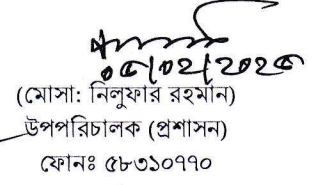 ০৫/০২/২০২৫
(মোসা: নিলুফার রহমান)
উপপরিচালক (প্রশাসন)
ফোনঃ ৫৮৩১০৭৭০